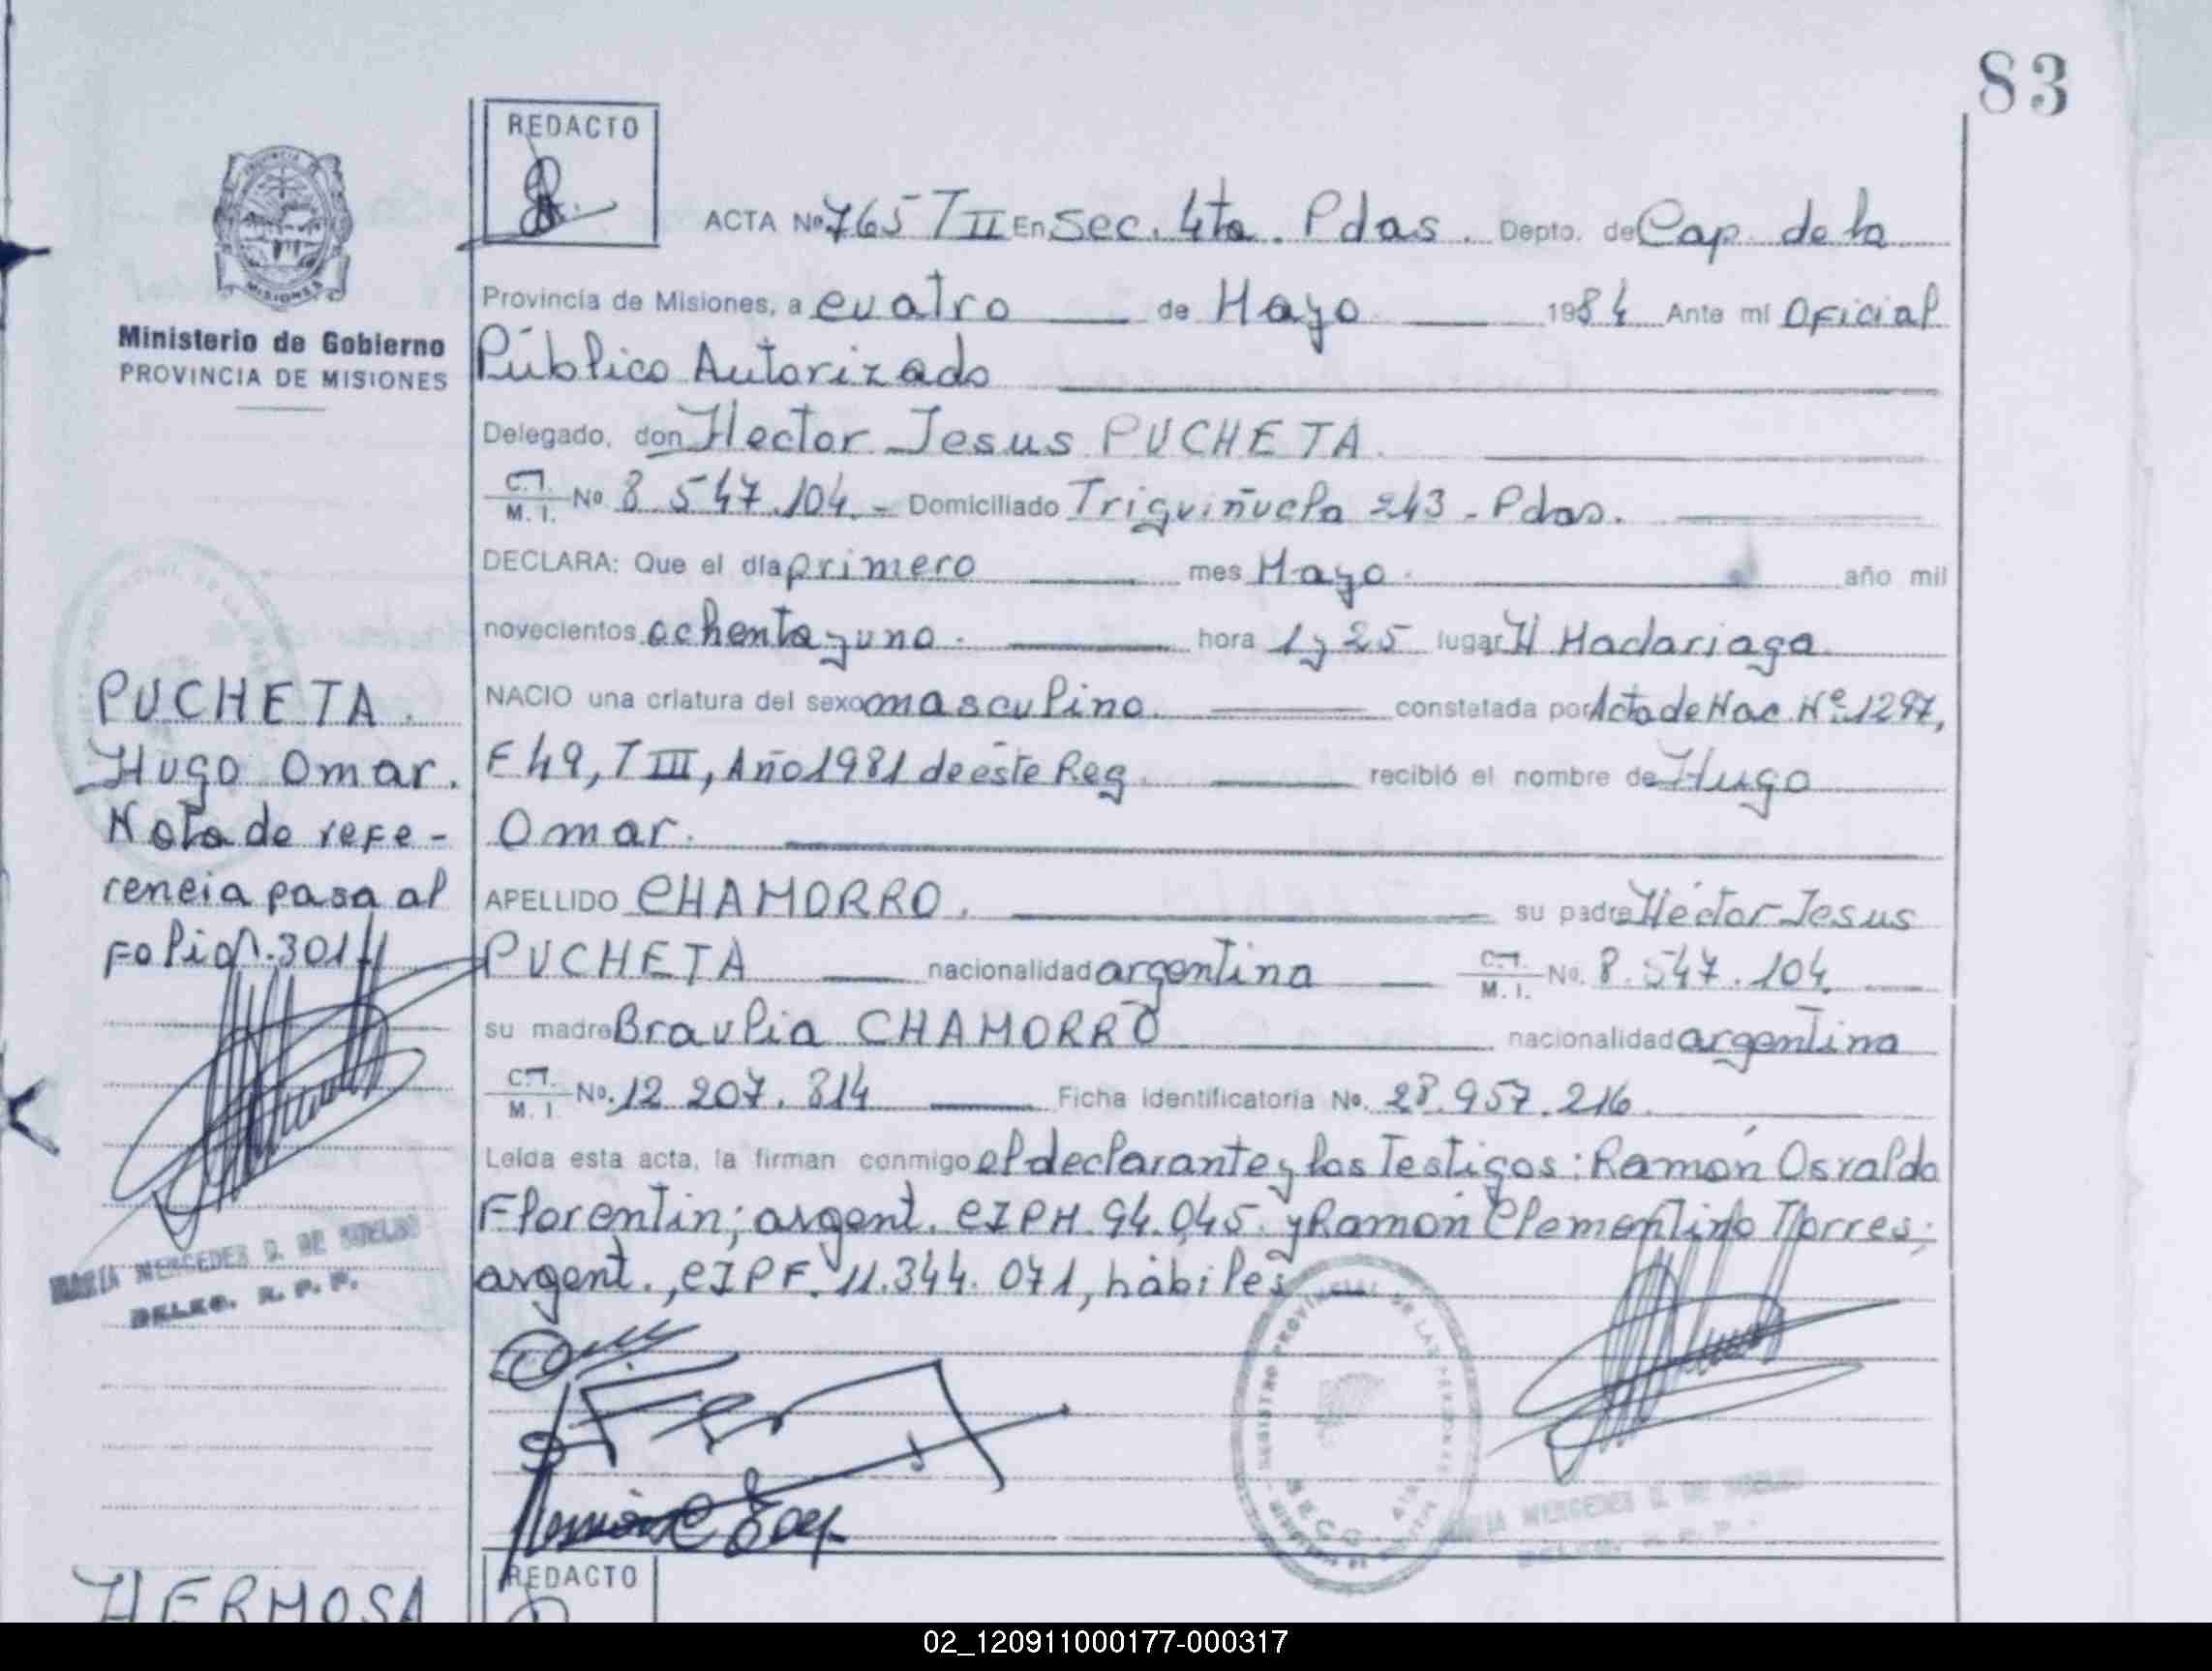 83
REDACTO
ACTA Nº 765 T II En Sec. 4ta. Pdas. Depto. de Cap. de la
Provincia de Misiones, a cuatro de Mayo 1984 Ante mí Oficial
Ministerio de Gobierno
PROVINCIA DE MISIONES
Público Autorizado
Delegado, don Hector Jesus PUCHETA.
C.I. M. I. Nº 8.547.104.- Domiciliado Triguiñuela 243 - Pdas.
DECLARA: Que el día primero mes Mayo. año mil
novecientos ochenta y uno. hora 1 y 25 lugar H Madariaga
NACIO una criatura del sexo masculino. constatada por Acta de Nac. Nº 1297,
F 49, T III, Año 1981 de éste Reg. recibió el nombre de Hugo
Omar.
APELLIDO CHAMORRO. su padre Héctor Jesus
PUCHETA nacionalidad argentina C.I. M. I. Nº. 8.547.104.
su madre Braulia CHAMORRO nacionalidad argentina
C.I. M. I. Nº. 12.207.814 Ficha identificatoria Nº. 28.957.216.
Leída esta acta, la firman conmigo el declarante y los Testigos: Ramón Osvaldo
Florentin; argent. CIPM. 94.045. y Ramón Clementino Torres;
argent., CIPF. 11.344.071, hábiles
PUCHETA.
Hugo Omar.
Nota de refe-
rencia pasa al
folio n. 301
MARIA MERCEDES DE
DELEG. R. P. P.
REGISTRO PROVINCIAL DE LAS PERSONAS
MARIA MERCEDES DE
DELEG. R. P. P.
HERMOSA
REDACTO
02_120911000177-000317